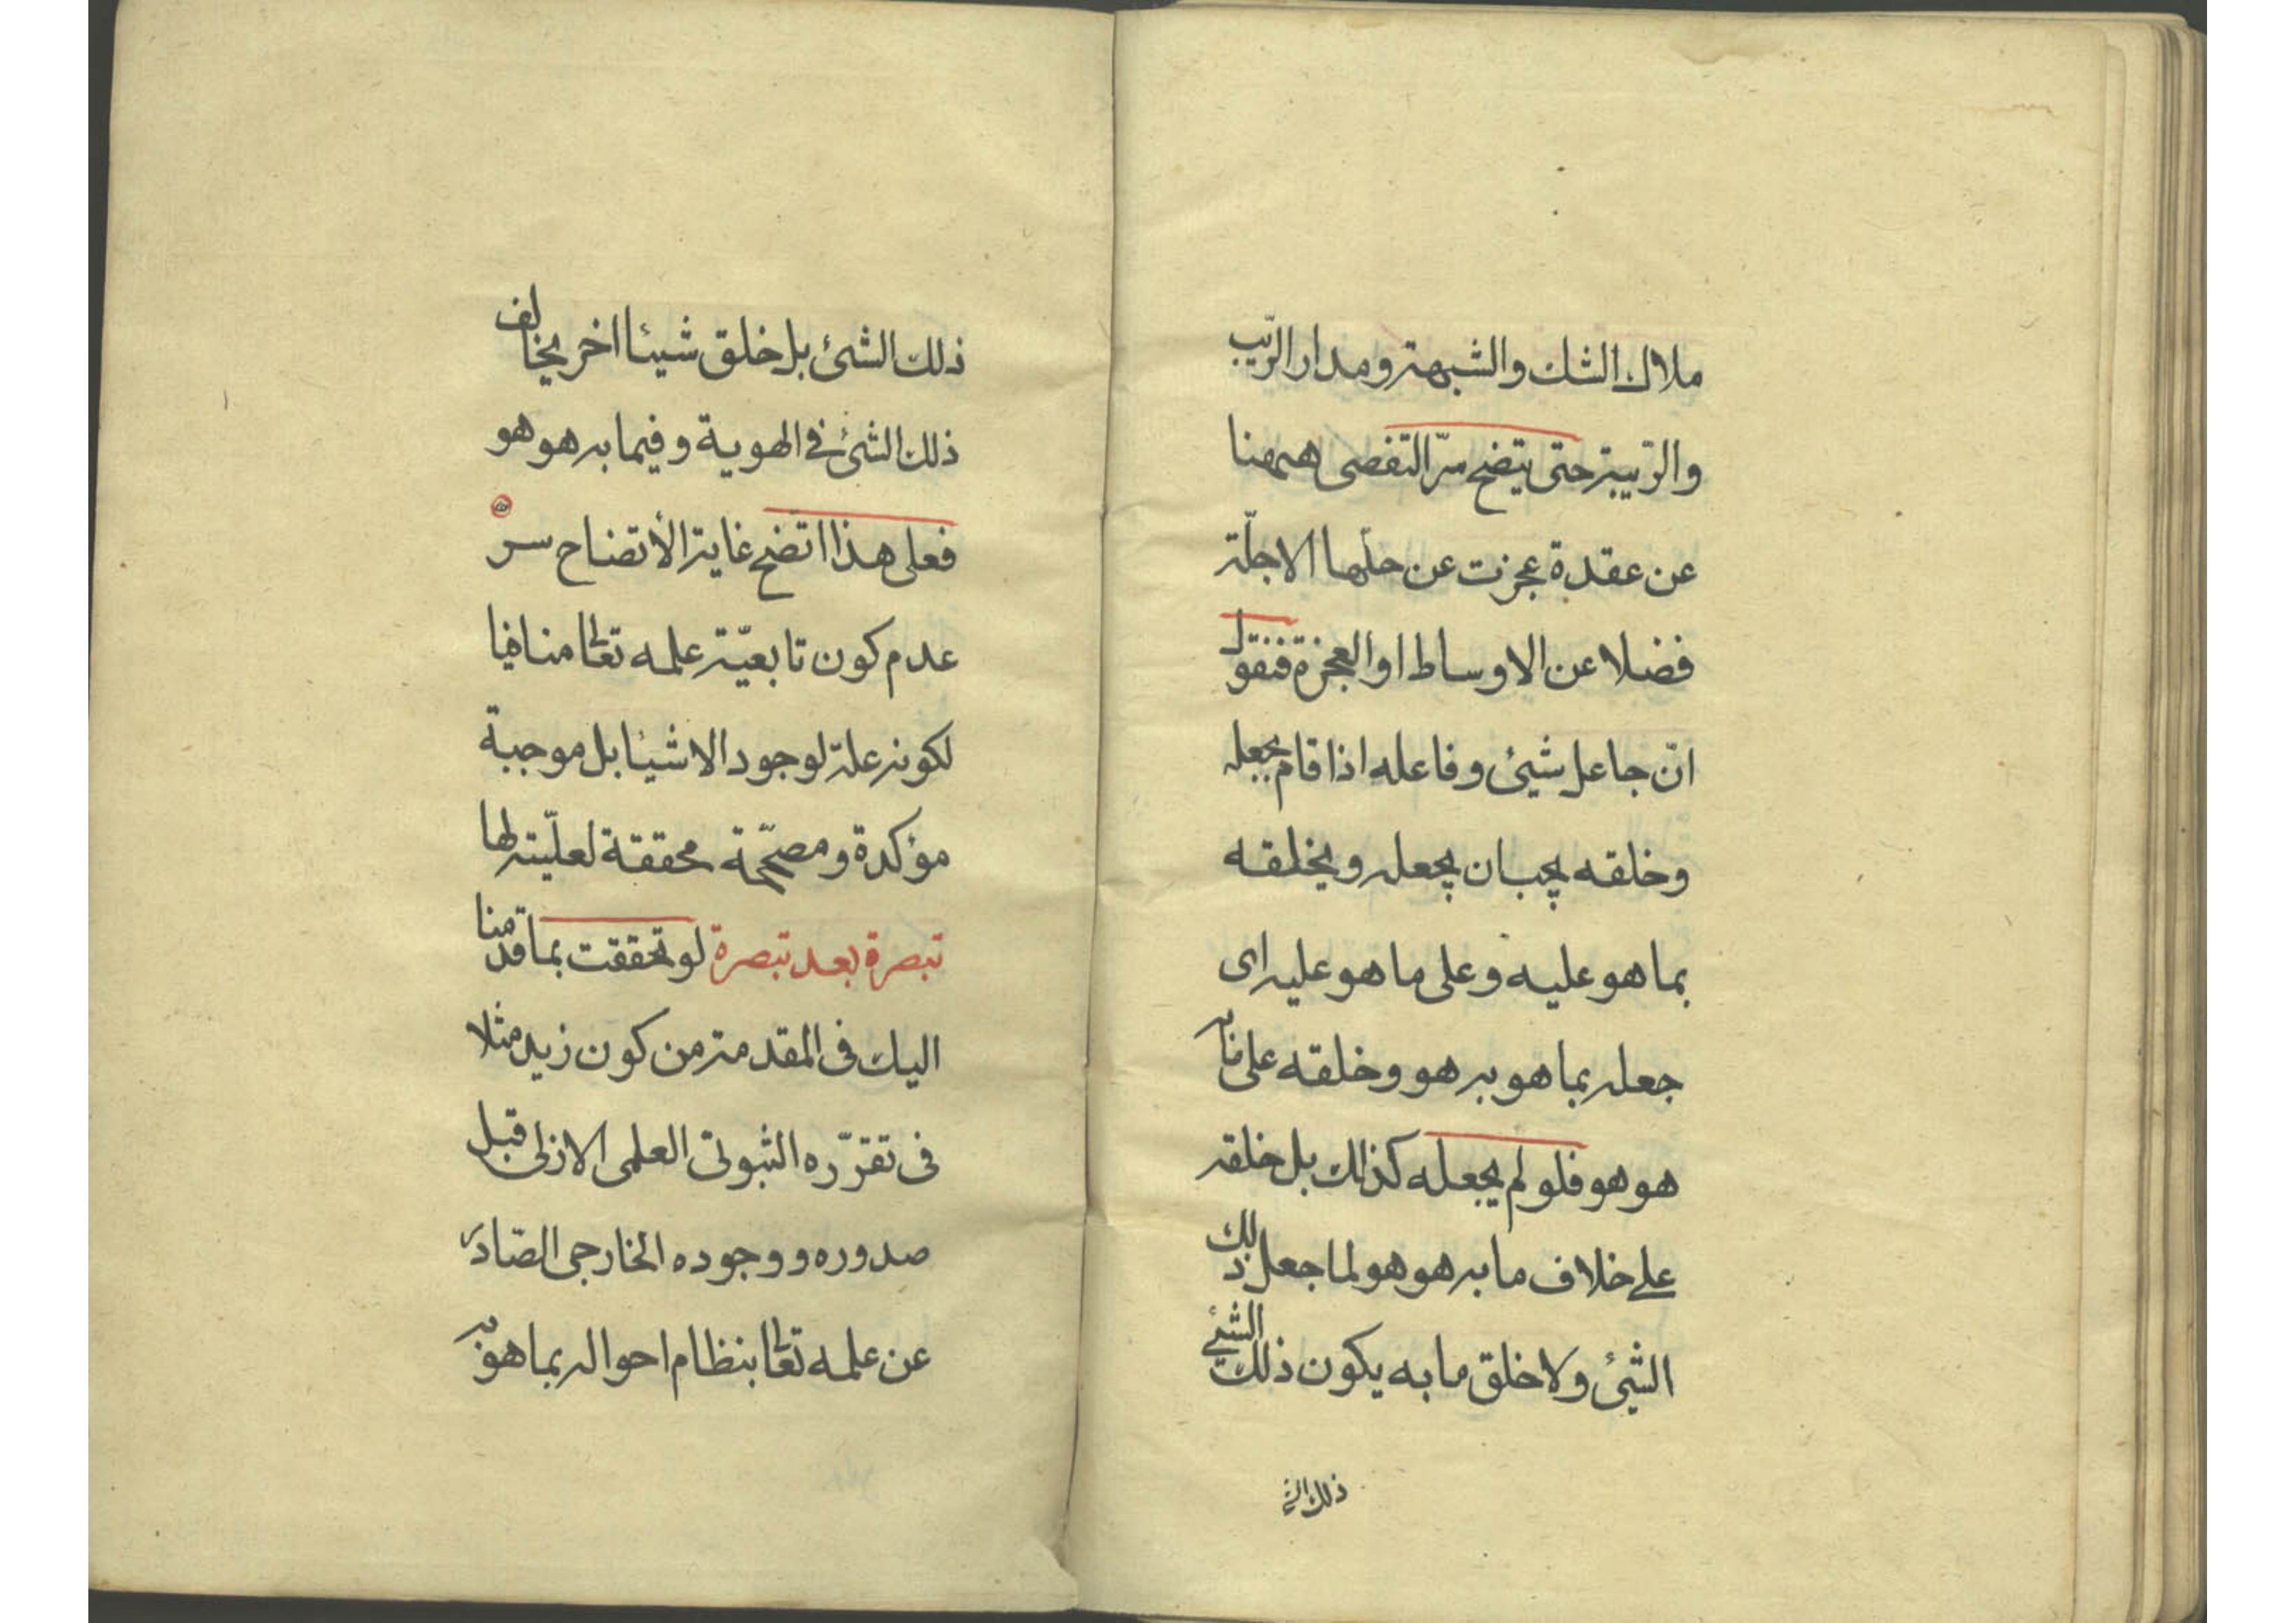 ملاك الشك والشبهة ومدار الريب
والرّيبة حتى يتضح سرّ التفصى ههنا
عن عقدة عجزت عن حلّها الاجلّة
فضلا عن الاوساط او العجزة فنقول
انّ جاعل شيئ وفاعله اذا قام بجعله
وخلقه يجب ان يجعله ويخلقه
بما هو عليه وعلى ما هو عليه اى
جعله بما هو به هو وخلقه على ما به
هو هو فلو لم يجعله كذلك بل خلقه
على خلاف ما به هو هو لما جعل ذلك
الشئ ولا خلق ما به يكون ذلك الشئ
ذلك الش
ذلك الشئ بل خلق شيئا اخر يخالف
ذلك الشئ فى الهوية وفيما به هو هو
فعلى هذا اتضح غاية الأتضاح سر
عدم كون تابعيّة علمه تعالى منافيا
لكونه علة لوجود الاشيئا بل موجبة
مؤكدة ومصحّحة محققة لعلّيته لها
تبصرة بعد تبصرة لو تحققت بما قدمنا
اليك فى المقدمة من كون زيد مثلا
فى تقرّره الثبوتى العلمى الازلى قبل
صدوره ووجوده الخارجى الصّادر
عن علمه تعالى بنظام احواله بما هو به